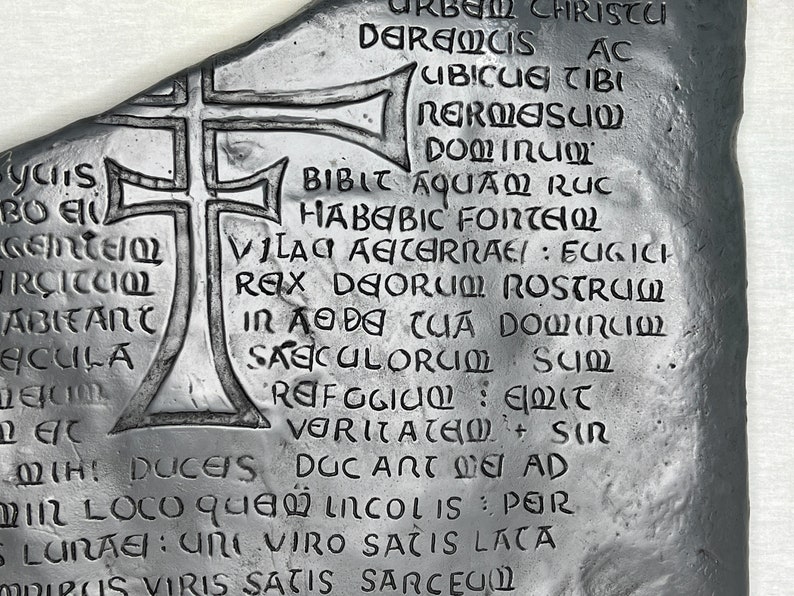 URBEM CHRISTU
DEREMCIS AC
UBICUE TIBI
NERMESUM
DOMINUM
BIBIT AQUAM RUC
BO EI HABEBIC FONTEM
GENTEM VILACI AETERNAEI : EUGICI
RCITUM REX DEORUM NOSTRUM
ABITANT IN AEDE TUA DOMINUM
ECULA SAECULORUM SUM
MEUM REFUGIUM : EMIT
M ET VERITATEM + SIN
MIHI DUCEIS DUCANT MEI AD
MIN LOCO QUEM INCOLIS : PER
S LUNAEI : UNI VIRO SATIS LATA
MNIBUS VIRIS SATIS SANCEUM